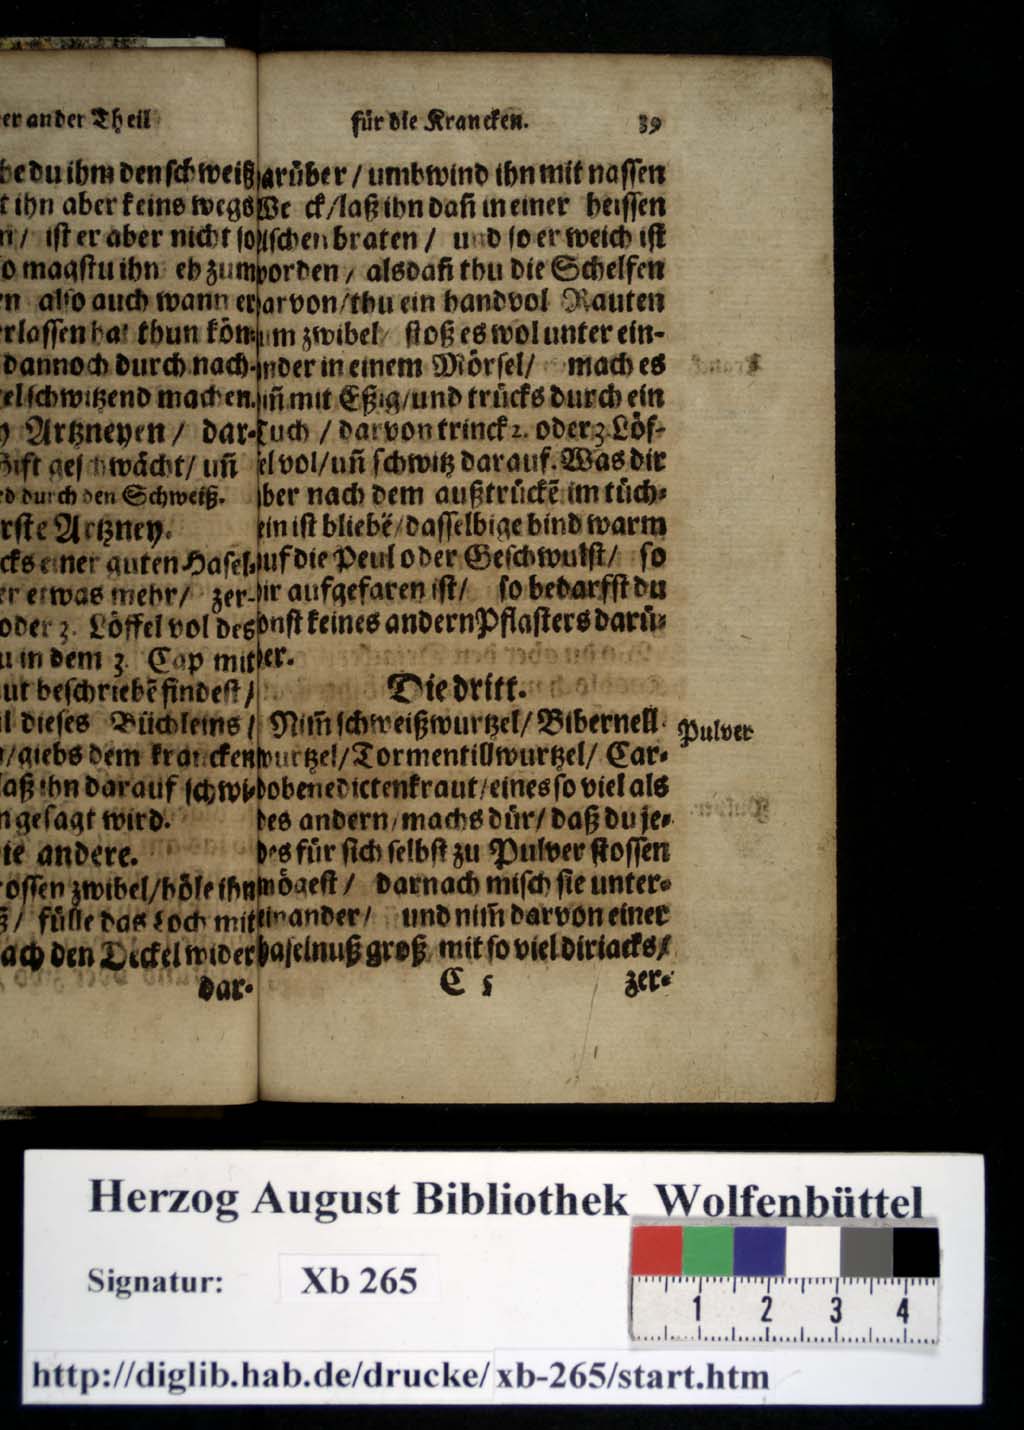 er ander Theil
be du ihm den schweiß
t ihn aber keins wegs
n/ ist er aber nicht so
o magstu ihn eh zum
en also auch wann er
rlassen hat thun kön-
dannoch durch nach-
el schwitzend machen.
Artzneyen/ dar-
Gift geschwächt/ uñ
rd durch den Schweiß.
rste Artzney.
cks einer guten Hasel-
er etwas mehr/ zer-
oder 3. Löffel vol des
u in dem 3. Cap mit
ut beschriebē findest/
l dieses Büchleins/
/giebs dem krancken
laß ihn darauf schwi-
n gesagt wird.
ie andere.
rossen zwibel/höle ihn
ß/ fülle das Loch mit
ach den Deckel wider
dar-
für die Krancken. 39
arüber/umbwind ihn mit nassen
We ck/laß ihn dañ in einer heissen
schen braten/ und so er weich ist
orden/ alsdañ thu die Schelfen
arvon/thu ein handvol Rauten
um zwibel/ stoß es wol unter ein-
nder in einem Mörsel/ mach es
üñ mit Eßig/und trücks durch ein
Tuch/darvon trinck 2. oder 3. Löf-
el vol/uñ schwitz darauf. Was dir
ber nach dem außtrückē im tüch-
ein ist bliebē/dasselbige bind warm
uf die Peul oder Geschwulst/ so
ir aufgefaren ist/ so bedarfst du
onst keines andern Pflasters darü-
ber.
Die dritt.
Nim̃ schweißwurtzel/Bibernell-
wurtzel/Tormentillwurtzel/Car-
dobenedictenkraut/eines so viel als
des andern/machs dür/daß du je-
des für sich selbst zu Pulver stossen
mögest/ darnach misch sie unter-
einander/ und nim̃ darvon einer
haselnuß groß/mit so viel diriacks/
C 5 zer-
Pulver
Herzog August Bibliothek Wolfenbüttel
Signatur: Xb 265
1 2 3 4
http://diglib.hab.de/drucke/xb-265/start.htm